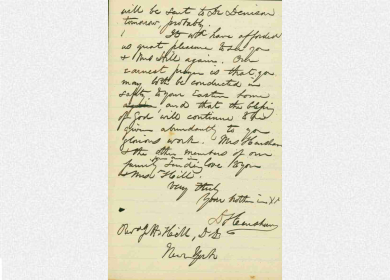 will be sent to Dr Denison
tomorrow, probably.
It wd have afforded
us great pleasure to see you
& Mrs Hill again. Our
earnest prayer is that you
may both be conducted in
safety to your Eastern home
and that the blessing
of God will continue to be
given abundantly to your
glorious work. Mrs Henshaw
& the other members of our
family send love to you
& Mrs Hill.
Very truly
Your brother in X
Henshaw
Revd J. H. Hill, D.D.
New York